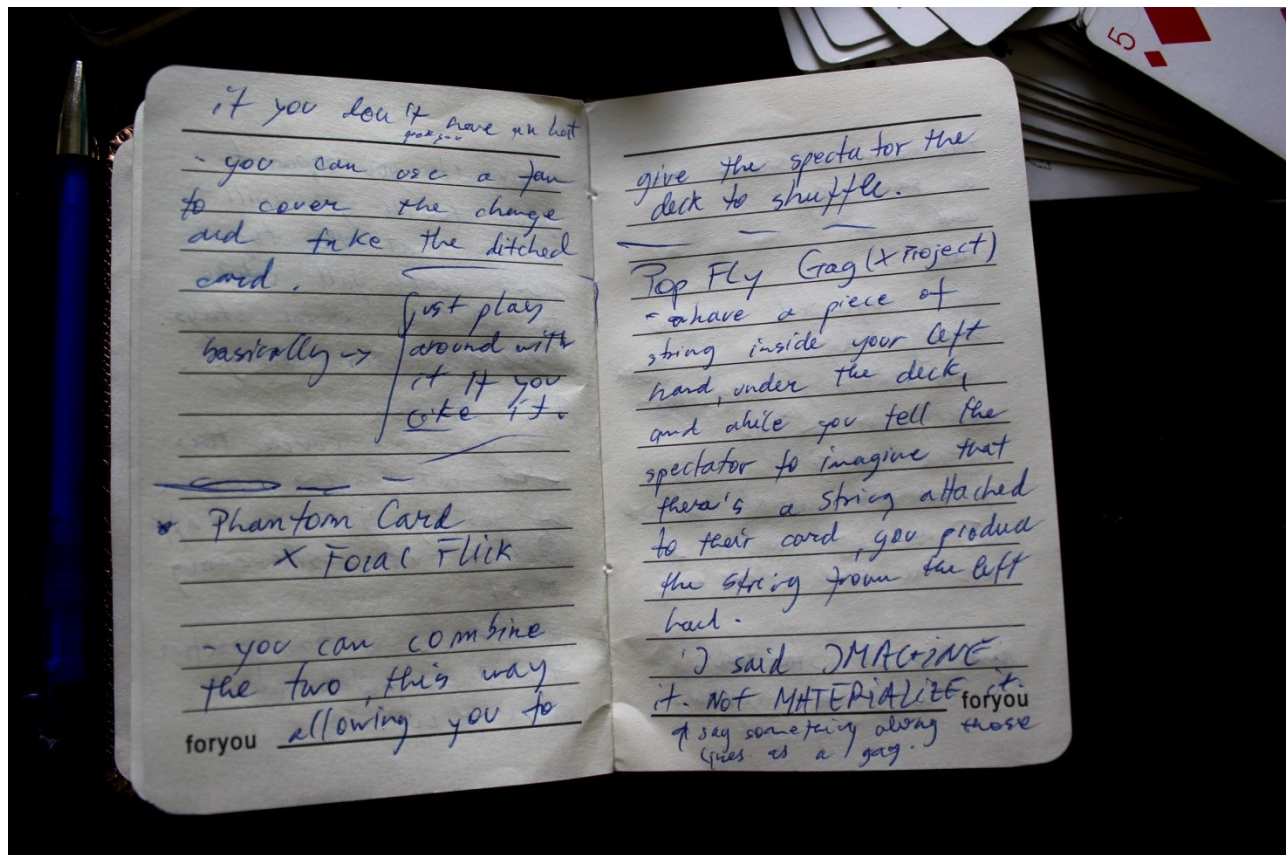 if you don't have an hat
- you can use a fan
to cover the change
and take the ditched
card.
basically → just play
around with
it if you
like it.
* Phantom Card
X Focal Flick
- you can combine
the two, this way
allowing you to
foryou
give the spectator the
deck to shuffle.
Pop Fly Gag (X Project)
- have a piece of
string inside your left
hand, under the deck,
and while you tell the
spectator to imagine that
there's a string attached
to their card, you produce
the string from the left
hand.
"I said IMAGINE
it. NOT MATERIALIZE it.
foryou
say something along those
lines as a gag.
5